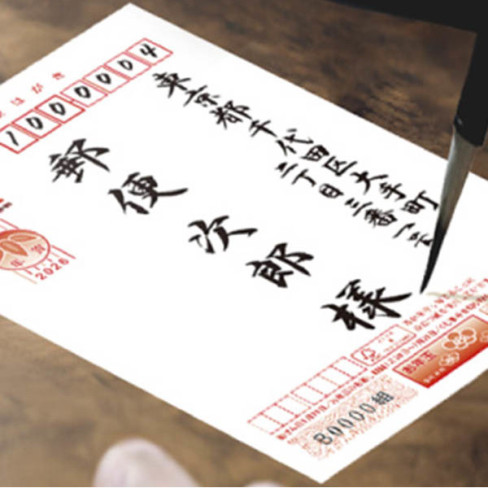 はがき
1000004
東京都千代田区大手町
二丁目三番一号
郵便次郎様
年賀
2026
お年玉
B0000組